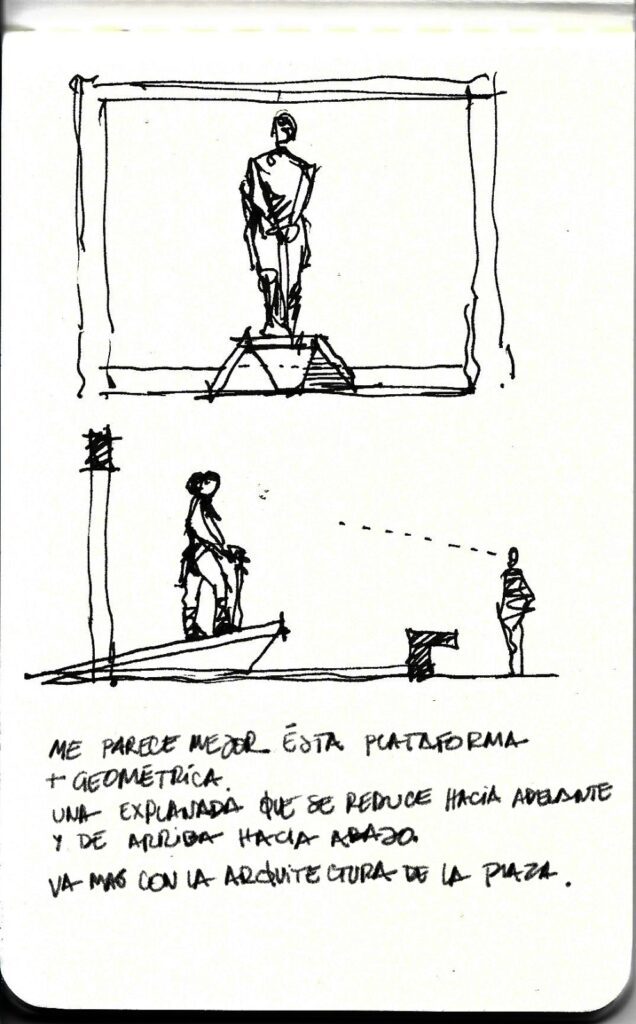 ME PARECE MEJOR ÉSTA PLATAFORMA
+ GEOMÉTRICA.
UNA EXPLANADA QUE SE REDUCE HACIA ADELANTE
Y DE ARRIBA HACIA ABAJO.
VA MAS CON LA ARQUITECTURA DE LA PLAZA.